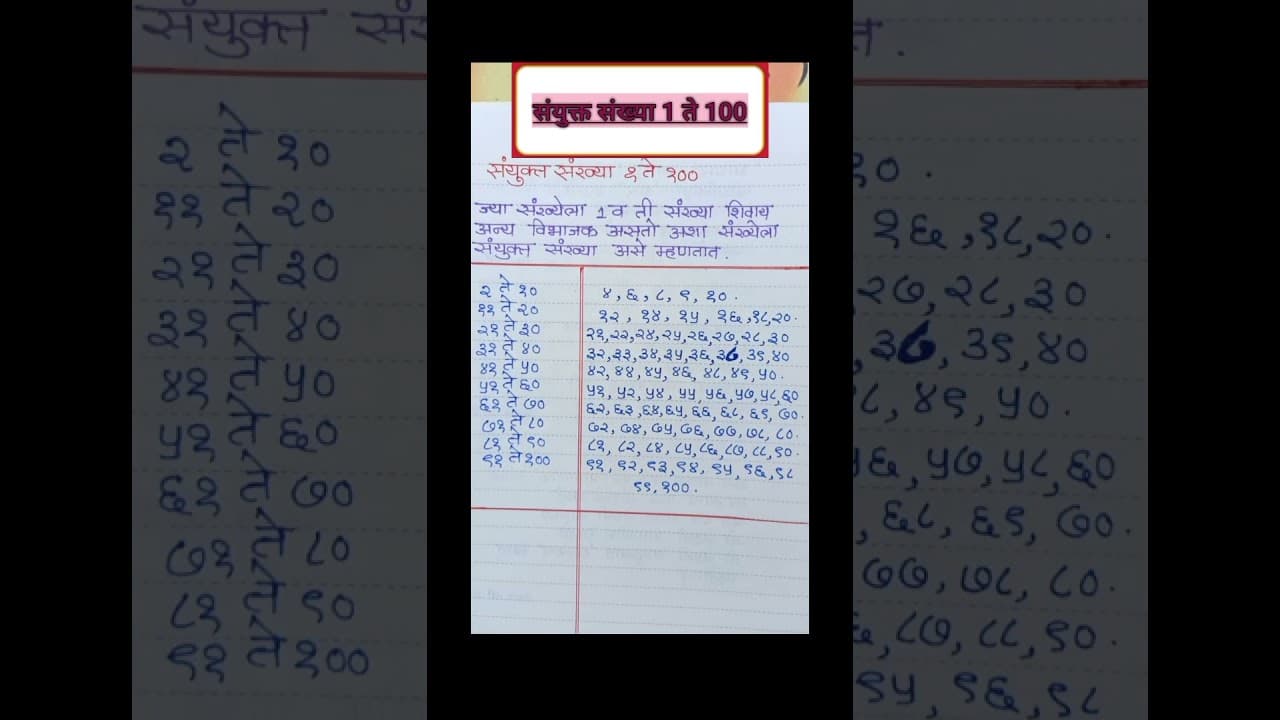 संयुक्त संख्या 1 ते 100
संयुक्त संख्या १ ते १००
ज्या संख्येला 1 व ती संख्या शिवाय
अन्य विभाजक असतो अशा संख्येला
संयुक्त संख्या असे म्हणतात.
२ ते १० ४, ६, ८, ९, १०.
११ ते २० १२, १४, १५, १६, १८, २०.
२१ ते ३० २१, २२, २४, २५, २६, २७, २८, ३०
३१ ते ४० ३२, ३३, ३४, ३५, ३६, ३८, ३९, ४०
४१ ते ५० ४२, ४४, ४५, ४६, ४८, ४९, ५०.
५१ ते ६० ५१, ५२, ५४, ५५, ५६, ५७, ५८, ६०
६१ ते ७० ६२, ६३, ६४, ६५, ६६, ६८, ६९, ७०.
७१ ते ८० ७२, ७४, ७५, ७६, ७७, ७८, ८०.
८१ ते ९० ८१, ८२, ८४, ८५, ८६, ८७, ८८, ९०.
९१ ते १०० ९१, ९२, ९३, ९४, ९५, ९६, ९८
९९, १००.